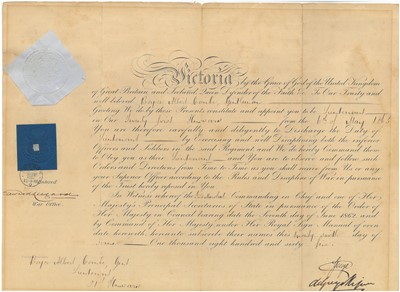 Victoria by the Grace of God of the United Kingdom
of Great Britain and Ireland, Queen, Defender of the Faith &c. To Our Trusty and
well beloved Albert Gentleman
Greeting We do by these Presents constitute and appoint you to be Lieutenant
in Our from the of May
You are therefore carefully and diligently to Discharge the Duty of
Lieutenant by Exercising and Well Disciplining both the inferior
Officers and Soldiers in the said Regiment and We do hereby Command them
to Obey you as their Lieutenant and You are to observe and follow such
Orders and Directions from Time to Time as you shall receive from Us or any
your Superior Officer according to the Rules and Discipline of War in pursuance
of the Trust hereby reposed in You
In Witness whereof the Commanding in Chief and one of Her
Majesty's Principal Secretaries of State in pursuance of the Order of
Her Majesty in Council bearing date the Seventh day of June 1862 and
by Command of Her Majesty under Her Royal Sign Manual of even
date therewith hereunto subscribe their names this day of
One thousand eight hundred and sixty
War Office
Albert Gent
Lieutenant